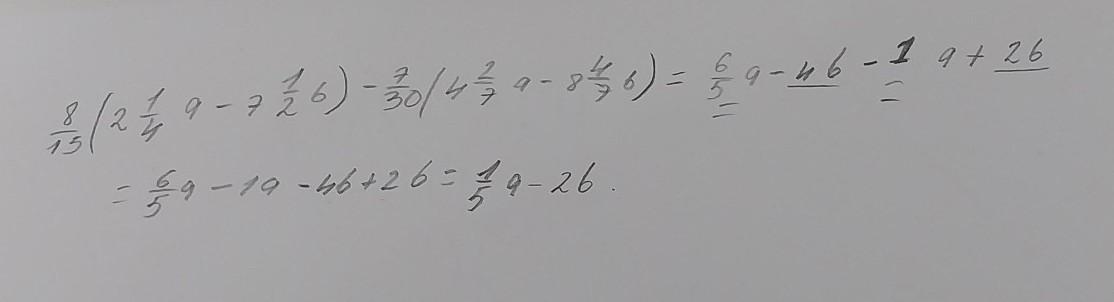 8/15 (2 1/4 a - 7 1/2 b) - 7/30 (4 2/7 a - 8 4/7 b) = 6/5 a - 4b - 1 a + 2b
= 6/5 a - 1a - 4b + 2b = 1/5 a - 2b.